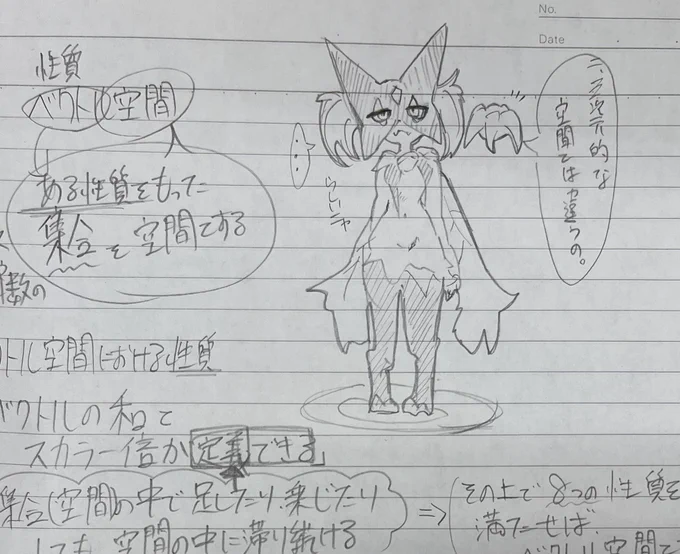 No.
Date
性質
ベクトル空間
ある性質をもった
集合を空間とする
・・・
らしいニャ
二、三次元的な
空間とは違うの。
数の
トル空間における性質
ベクトルの和と
スカラー倍が定義できる」
集合(空間)の中で足したり、乗じたり
しても、空間の中に滞り続ける
⇒
その上で8つの性質を
満たせば
ベクトル空間で